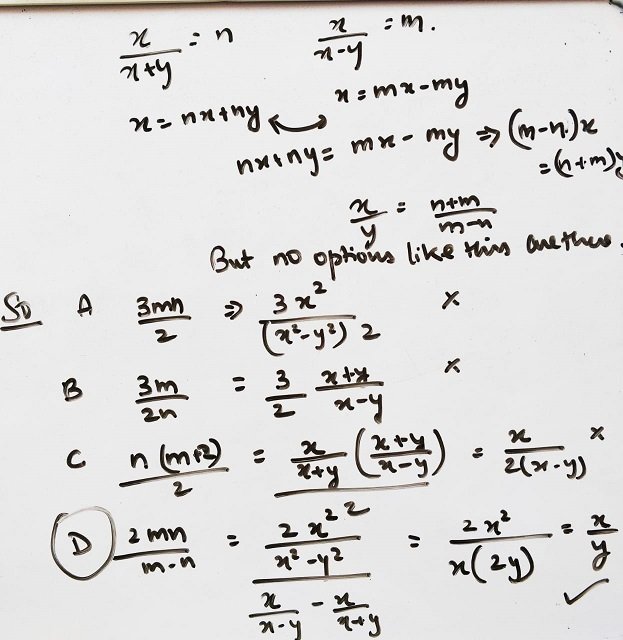 x/(x+y) = n    x/(x-y) = m.
x = mx - my
x = nx + ny
nx + ny = mx - my ⇒ (m-n)x
= (n+m)y
x/y = (n+m)/(m-n)
But no options like this are there.
So A 3mn/2 ⇒ 3x²/((x²-y²) 2) ×
B 3m/2n = 3/2 (x+y)/(x-y) ×
C n(m+2)/2 = x/(x+y) ((x+y)/(x-y)) = x/2(x-y) ×
D 2mn/(m-n) = (2x²/(x²-y²))/(x/(x-y) - x/(x+y)) = 2x²/x(2y) = x/y ✓